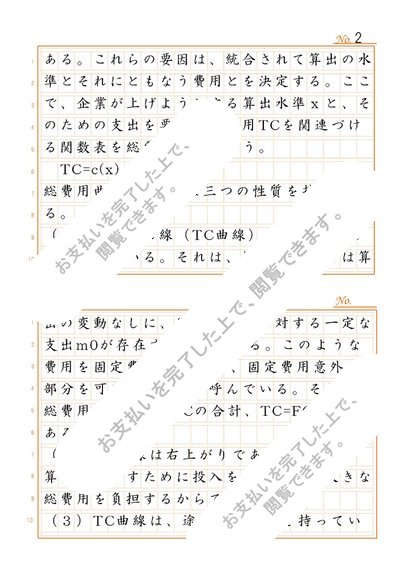 No. 2
ある。これらの要因は、統合されて算出の水
準とそれにともなう費用とを決定する。ここ
で、企業が上げよう する算出水準xと、そ
のための支出を 用TCを関連づけ
る関数表を総 う。
TC=c(x)
総費用曲 三つの性質を
る。
( 線(TC曲線)
いる。それは、 は算
お支払いを完了した上で、
閲覧できます。
お支払いを完了した上で、閲覧できます。
No.
の変動なしに、 対する一定な
支出m0が存在 る。このような
費用を固定費 、固定費用意外
部分を可 呼んでいる。そ
総費用 Cの合計、TC=F
ある
( は右上がりであ
算 すために投入を きな
総費用を負担するからで
(3)TC曲線は、途 持ってい
お支払いを完了した上で、
閲覧できます。